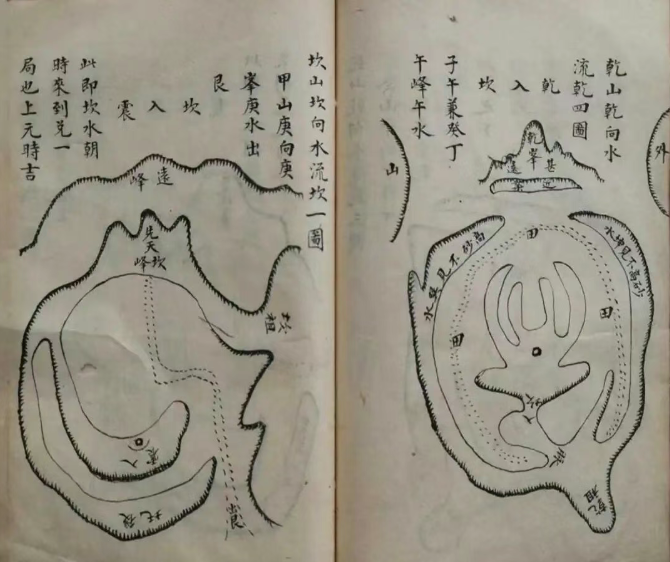 乾山乾向水
流乾四圖
乾入坎
子午兼癸丁
午峰午水
外
山
乾峯
甚遠
田
田
田
坎入
乾祖
坎山坎向水流坎一圖
甲山庚向庚
峯庚水出
艮
坎入震
此即坎水朝
時來到兑一
局也上元時吉
遠峰
先天坎峰
祖
震入
後托
艮